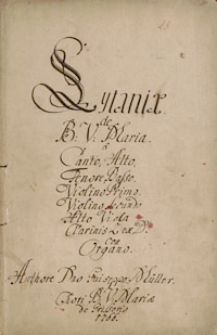 Lytaniæ
de
B. V. Maria.
a
Canto, Alto,
Tenore, Basso.
Violino Primo.
Violino Secundo
Alto Viola
Clarinis Ex D.
Con
Organo.
Authore Dno Giuseppe Müller.
Chori B. V. Mariæ
de